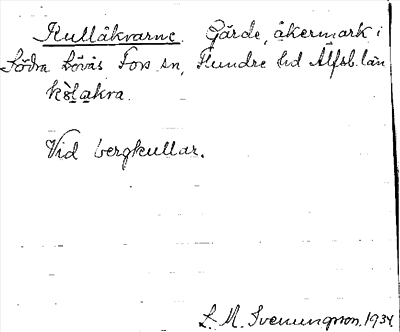 Kullåkrarne. Gärde, åkermark i
Södra Lövås Fors sn, Flundre hd Älfsb. län
kölakra.
Vid bergkullar.
L. M. Svenungsson. 1934